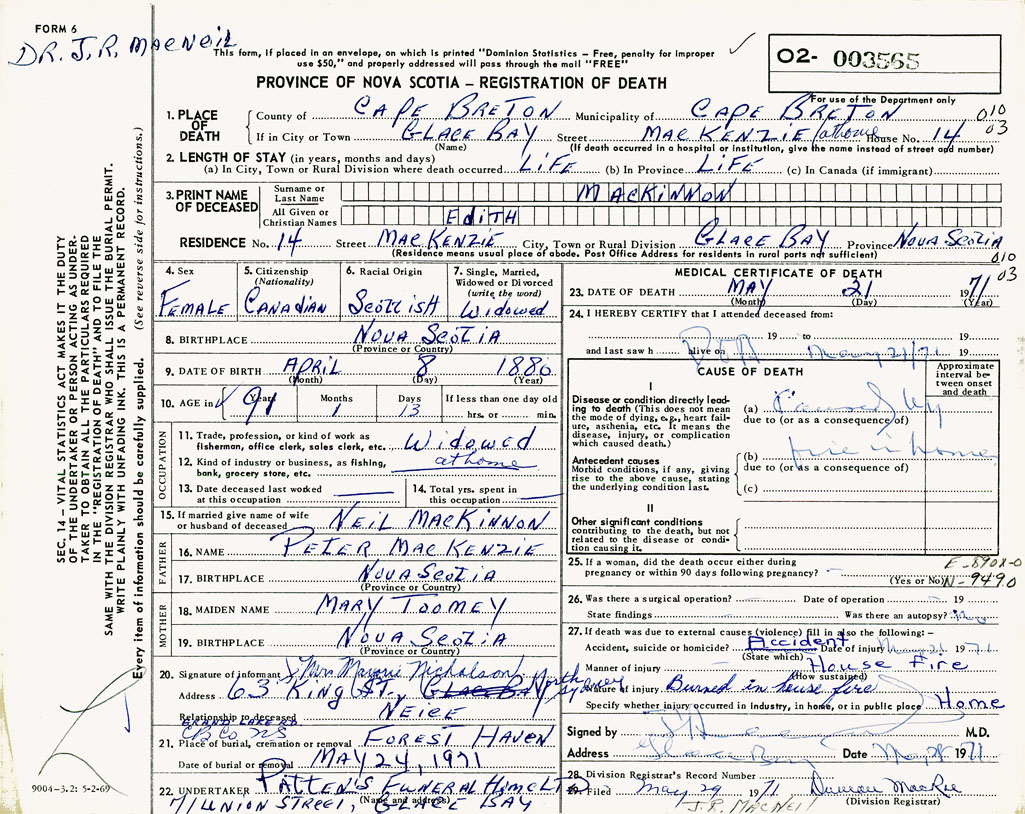 FORM 6
DR. J.R. MACNEIL
This form, if placed in an envelope, on which is printed "Dominion Statistics – Free, penalty for improper
use $50," and properly addressed will pass through the mail "FREE"
02- 003565
For use of the Department only
PROVINCE OF NOVA SCOTIA – REGISTRATION OF DEATH
010
03
1. PLACE OF DEATH
County of CAPE BRETON Municipality of CAPE BRETON
If in City or Town GLACE BAY Street MACKENZIE (at home House No. 14
(Name) (If death occurred in a hospital or institution, give the name instead of street and number)
2. LENGTH OF STAY (in years, months and days)
(a) In City, Town or Rural Division where death occurred LIFE (b) In Province LIFE (c) In Canada (if immigrant)
3. PRINT NAME OF DECEASED
Surname or Last Name MACKINNON
All Given or Christian Names EDITH
RESIDENCE No. 14 Street MACKENZIE City, Town or Rural Division GLACE BAY Province NOVA SCOTIA
(Residence means usual place of abode. Post Office Address for residents in rural parts not sufficient)
010
03
4. Sex FEMALE
5. Citizenship (Nationality) CANADIAN
6. Racial Origin SCOTTISH
7. Single, Married, Widowed or Divorced (write the word) Widowed
8. BIRTHPLACE NOVA SCOTIA
(Province or Country)
9. DATE OF BIRTH APRIL 8 1880
(Month) (Day) (Year)
10. AGE in Years 91 Months 1 Days 13 If less than one day old
hrs. or min.
OCCUPATION
11. Trade, profession, or kind of work as
fisherman, office clerk, sales clerk, etc. WIDOWED
12. Kind of industry or business, as fishing,
bank, grocery store, etc. at home
13. Date deceased last worked
at this occupation
14. Total yrs. spent in
this occupation
15. If married give name of wife
or husband of deceased NEIL MACKINNON
FATHER
16. NAME PETER MACKENZIE
17. BIRTHPLACE NOVA SCOTIA
(Province or Country)
MOTHER
18. MAIDEN NAME MARY TOOMEY
19. BIRTHPLACE NOVA SCOTIA
(Province or Country)
20. Signature of informant Mrs Nicholson
Address 63 KING ST., GLACE BAY North Sydney
Relationship to deceased NEICE
GRAND LAKE RD.
CB Co NS
21. Place of burial, cremation or removal FOREST HAVEN
Date of burial or removal MAY 24, 1971
22. UNDERTAKER PATTEN'S FUNERAL HOME LTD
(Name and address)
71 UNION STREET, GLACE BAY
MEDICAL CERTIFICATE OF DEATH
23. DATE OF DEATH MAY 21 1971
(Month) (Day) (Year)
24. I HEREBY CERTIFY that I attended deceased from:
19 to 19
and last saw h alive on May 21/71 19
CAUSE OF DEATH
Approximate interval between onset and death
I
Disease or condition directly leading to death (This does not mean the mode of dying, e.g., heart failure, asthenia, etc. It means the disease, injury, or complication which caused death.)
(a) Caused by
due to (or as a consequence of)
Antecedent causes
Morbid conditions, if any, giving rise to the above cause, stating the underlying condition last.
(b) fire in home
due to (or as a consequence of)
(c)
II
Other significant conditions
contributing to the death, but not related to the disease or condition causing it.
25. If a woman, did the death occur either during
pregnancy or within 90 days following pregnancy?
(Yes or No)
E-890X-0
N-9490
26. Was there a surgical operation? Date of operation 19
State findings Was there an autopsy?
27. If death was due to external causes (violence) fill in also the following:—
Accident, suicide or homicide? Accident Date of injury May 21 1971
(State which)
Manner of injury House Fire
(How sustained)
Nature of injury Burned in house fire
Specify whether injury occurred in industry, in home, or in public place Home
Signed by M.D.
Address Glace Bay Date May 28 1971
28. Division Registrar's Record Number
29. Filed May 29 1971 Duncan MacRae
(Division Registrar)
J.R. MACNEIL
SEC. 14 – VITAL STATISTICS ACT MAKES IT THE DUTY
OF THE UNDERTAKER OR PERSON ACTING AS UNDER-
TAKER TO OBTAIN ALL THE PARTICULARS REQUIRED
IN THE "REGISTRATION OF DEATH" AND TO FILE THE
SAME WITH THE DIVISION REGISTRAR WHO SHALL ISSUE THE BURIAL PERMIT.
WRITE PLAINLY WITH UNFADING INK. THIS IS A PERMANENT RECORD.
Every item of information should be carefully supplied. (See reverse side for instructions.)
9004-3.2: 5-2-69